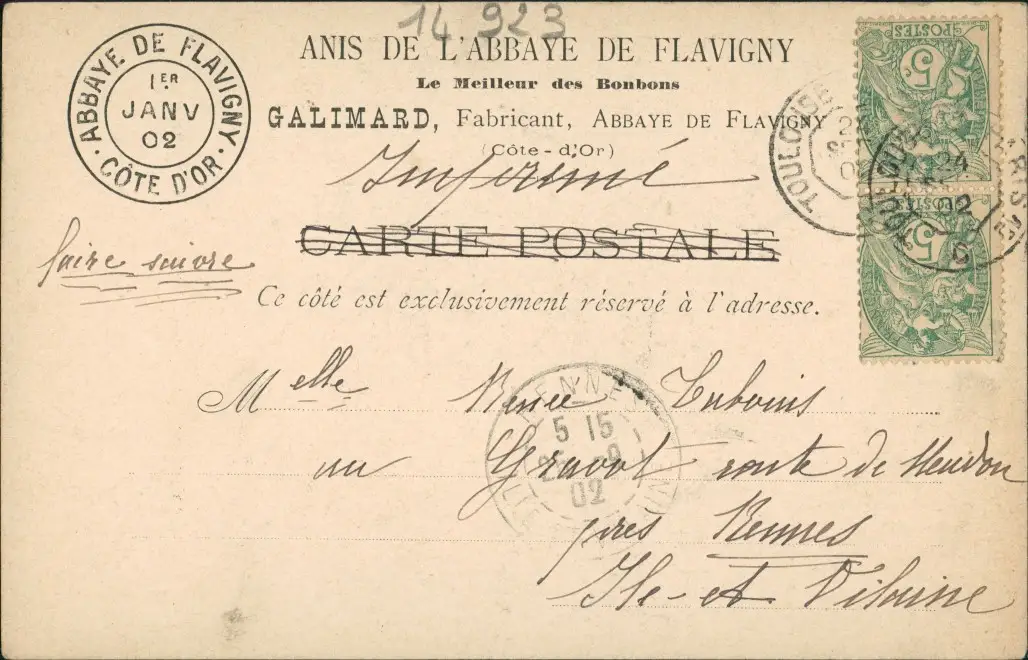 14 923
ANIS DE L'ABBAYE DE FLAVIGNY
Le Meilleur des Bonbons
GALIMARD, Fabricant, ABBAYE DE FLAVIGNY
(Côte-d'Or)
ABBAYE DE FLAVIGNY
1ER
JANV
02
CÔTE D'OR
Imprimé
CARTE POSTALE
faire suivre
Ce côté est exclusivement réservé à l'adresse.
POSTES
5
POSTES
5
TOULOUSE
24
Melle Renée Dubouis
au Gravot route de
près Rennes
Ile-et Vilaine
RENNES
5 15
25 -9
02